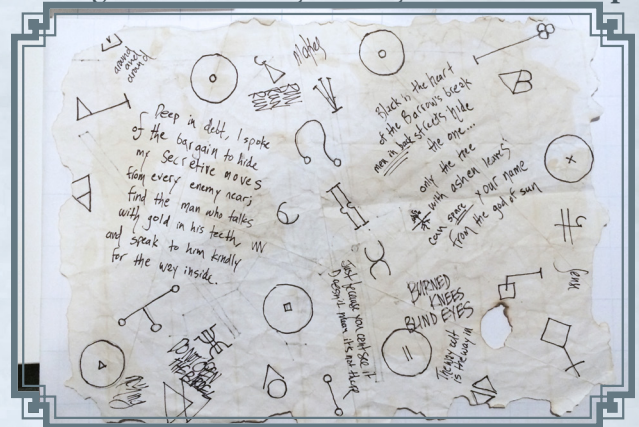 around
and
around
Makes
RUN
RUN
RUN
Deep in debt, I spoke
of the bargain to hide
my secretive moves
from every enemy near;
find the man who talks
with gold in his teeth
and speak to him kindly
for the way inside.
Black is the heart
of the Barrows break
men in back streets hide
the one...
only the tree
with ashen leaves
can spare your name
from the god of sun
Just because you cant see it
Doesn't mean it's not there
BURNED
KNEES
BLIND EYES
The way out
is the way in
DON'T